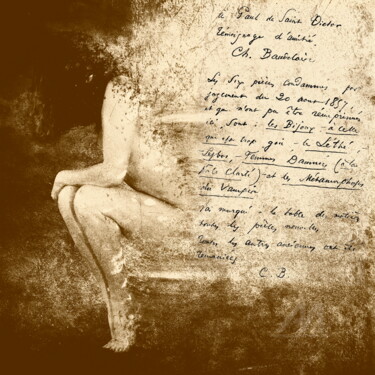 à Paul de Saint-Victor
témoignage d'amitié.
Ch. Baudelaire
Les six pièces condamnées par
jugement du 20 août 1857,
et qui n'ont pu être réimprimées
ici, sont : les Bijoux - à celle
qui est trop gaie - le Léthé -
Lesbos - Femmes Damnées (à la
pâle clarté) - et les Métamorphoses
du Vampire
J'ai marqué à la table de
toutes les pièces nouvelles.
Toutes les autres anciennes ont été
remaniées
C. B.